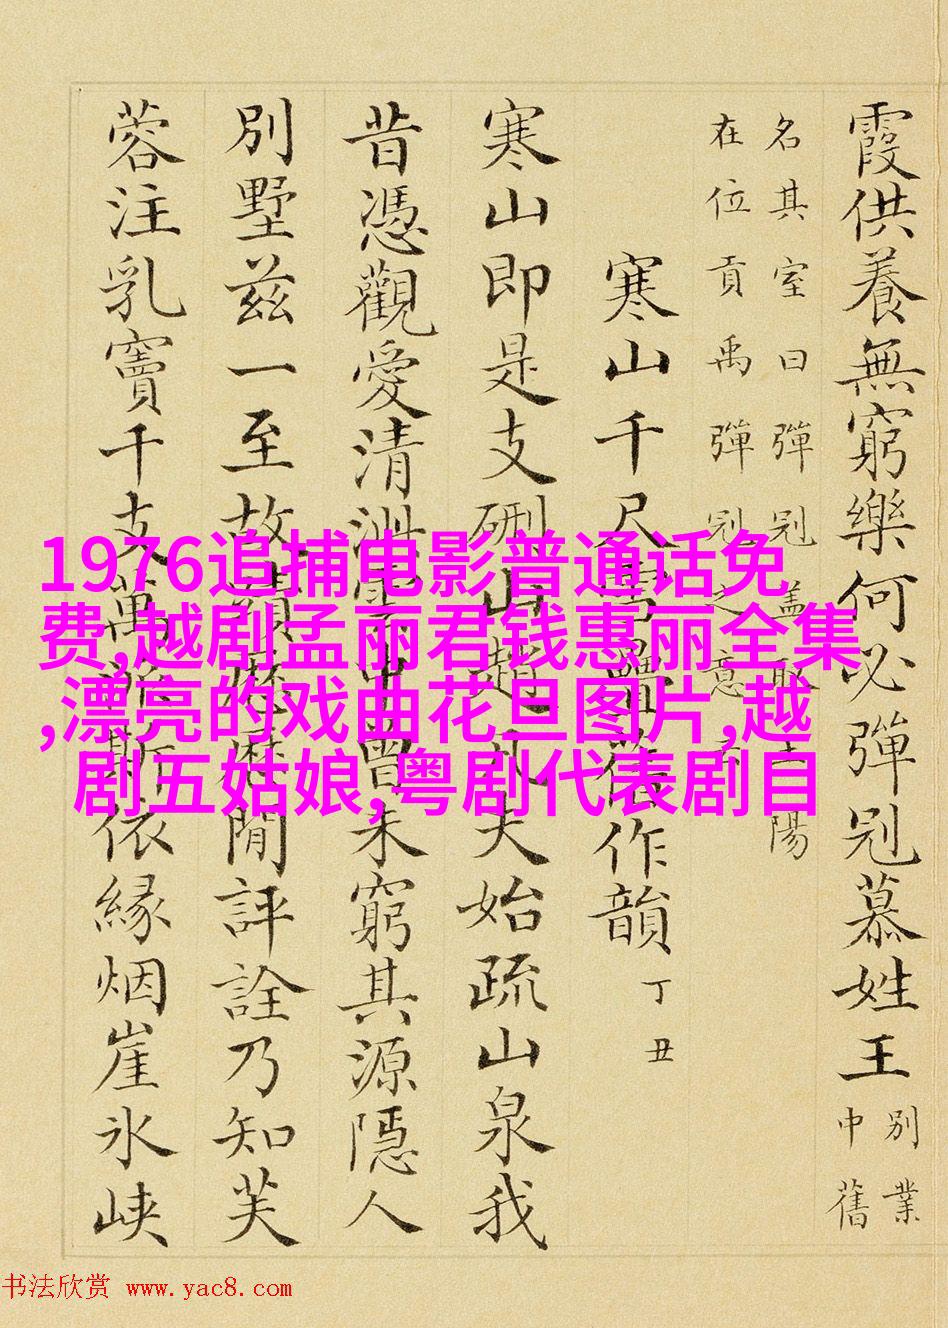 霞供養無窮樂何必彈冠慕姓王
別業
中舊
名其室曰彈冠盖取王陽
在位貢禹彈冠之意
寒山千尺雪疊舊作韻 丁丑
寒山即是支硎山趙氏夫始疏山泉我
昔憑觀愛清中曾未窮其源隱人
別墅茲一至故蹟歷歷閒評詮乃知芙
蓉注乳竇千支萬派斯依緣烟崖氷峽
1976追捕电影普通话免
费,越剧孟丽君钱惠丽全集
,漂亮的戏曲花旦图片,越
剧五姑娘,粤剧代表剧目
书法欣赏 www.yac8.com